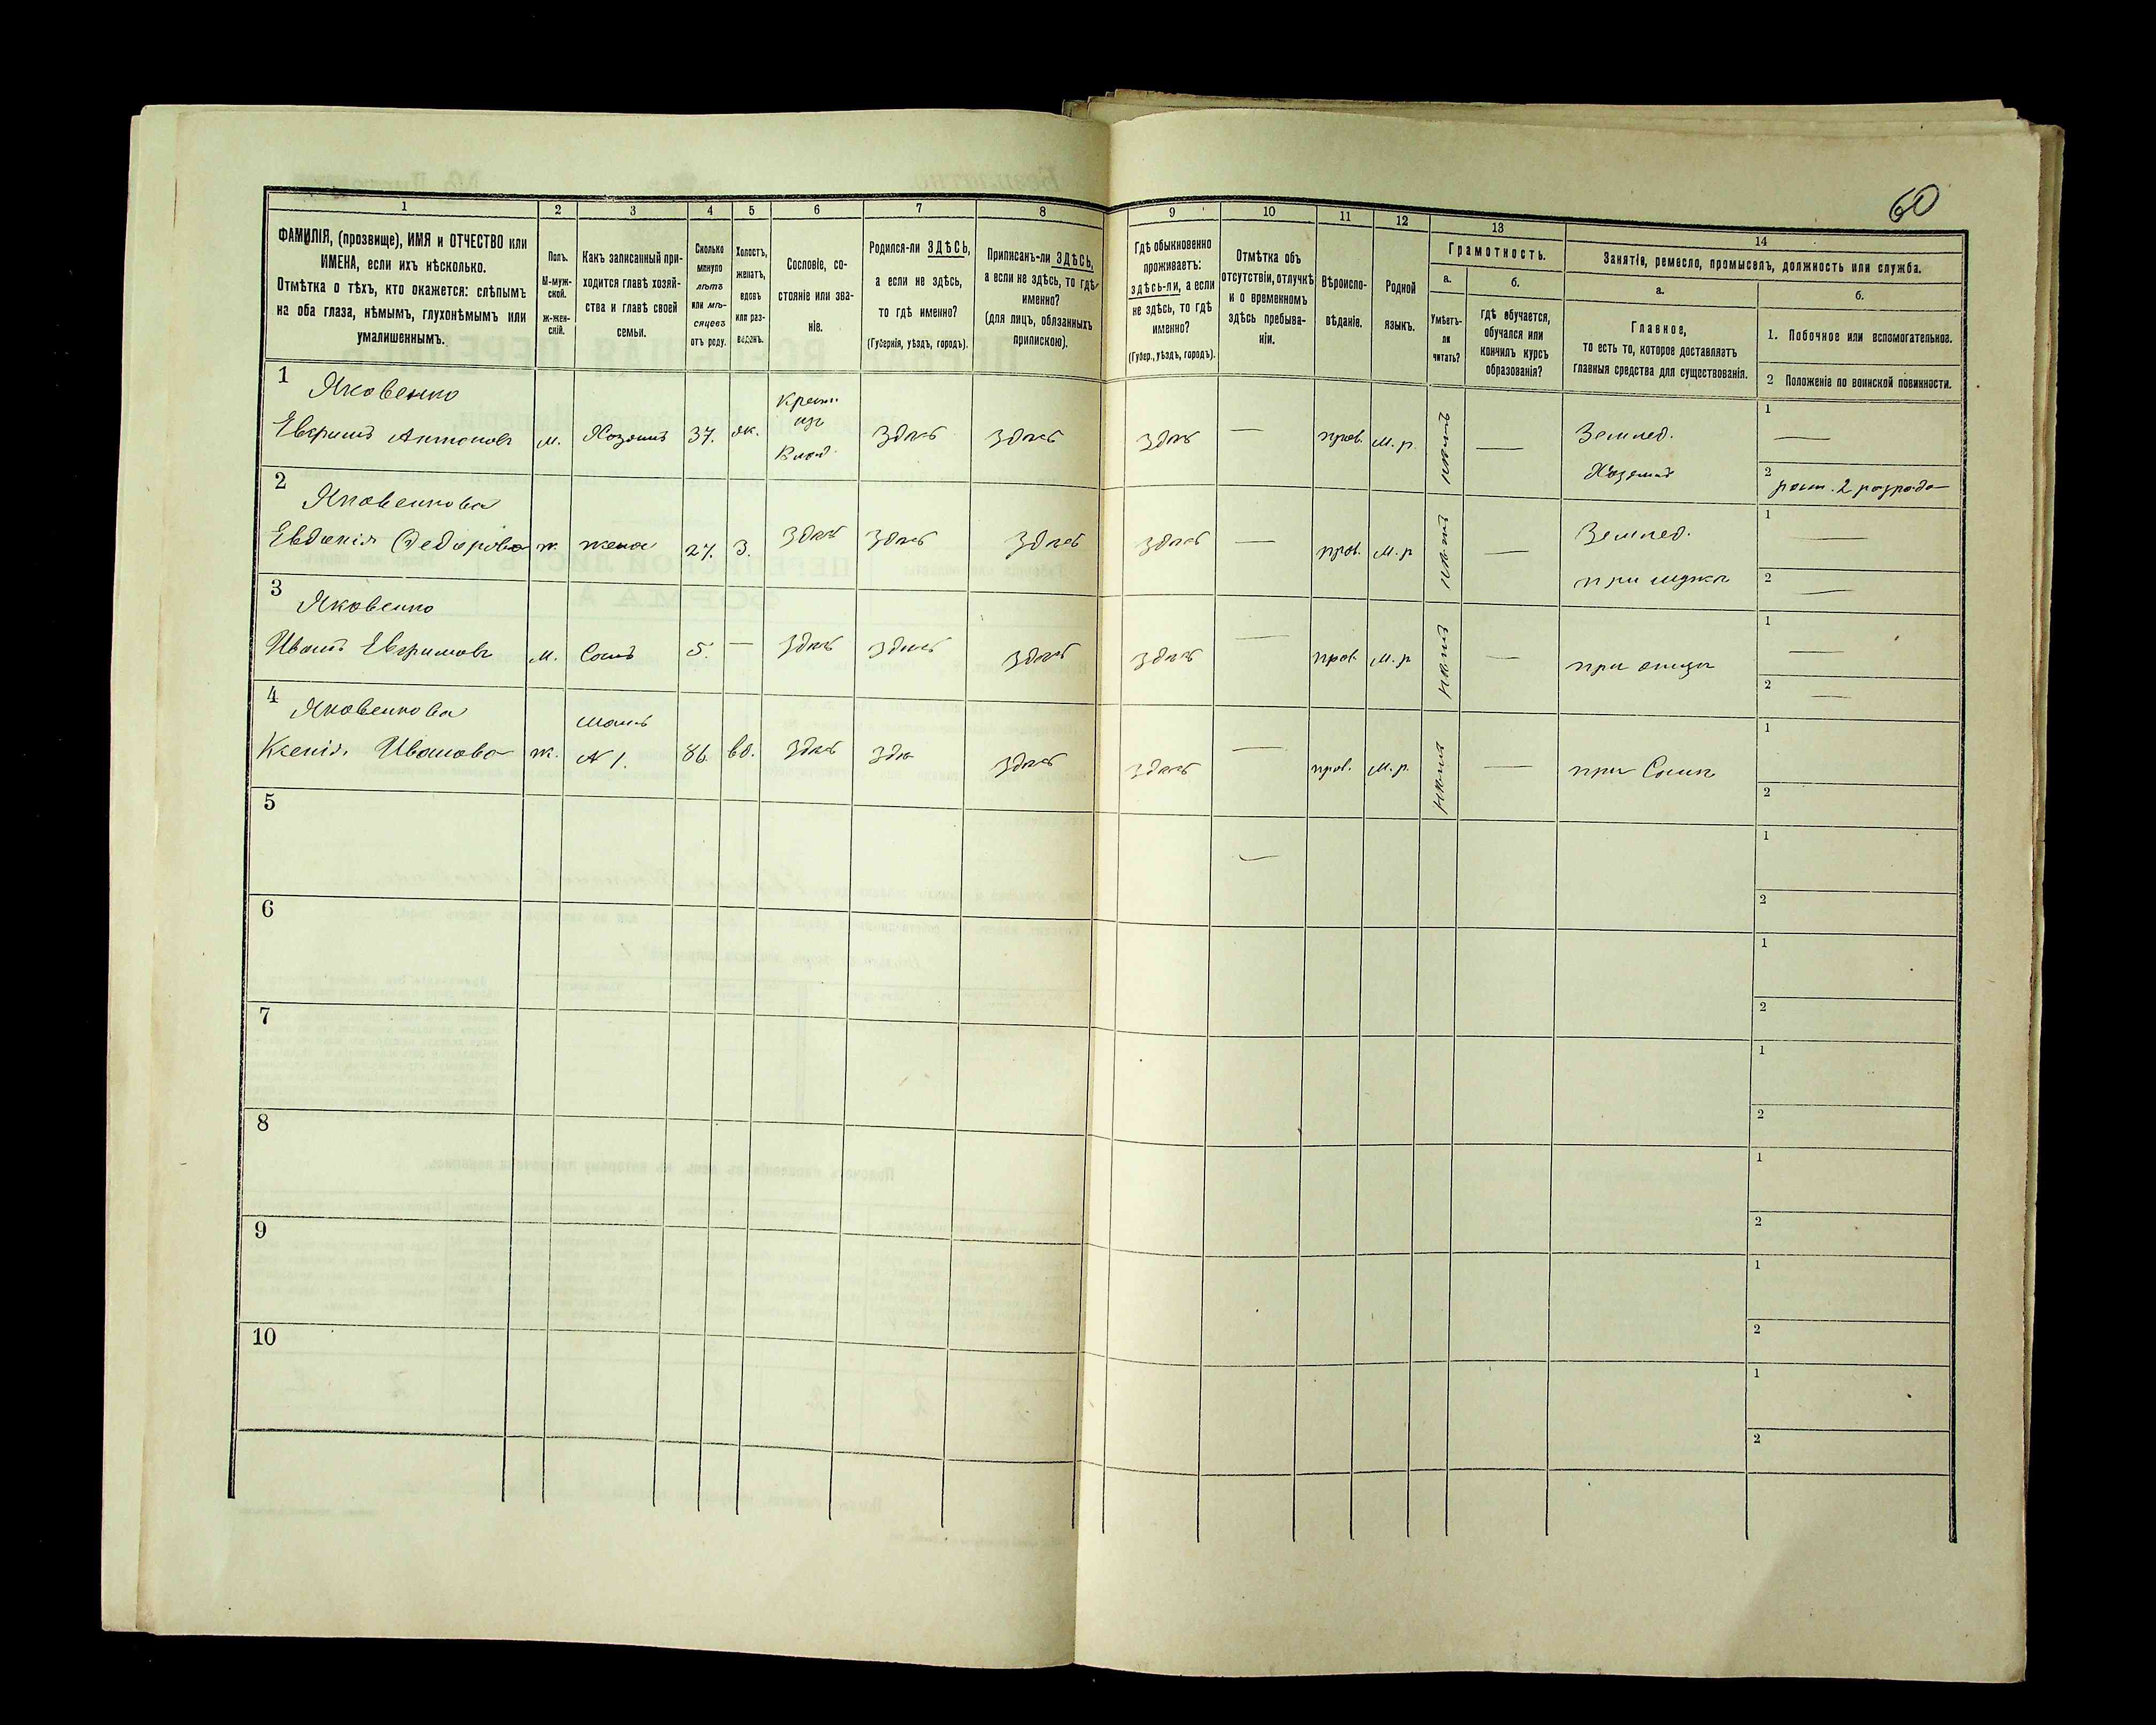 60
1
2
3
4
5
6
7
8
9
10
11
12
13
14
ФАМИЛІЯ, (прозвище), ИМЯ и ОТЧЕСТВО или
ИМЕНА, если ихъ нѣсколько.
Отмѣтка о тѣхъ, кто окажется: слѣпымъ
на оба глаза, нѣмымъ, глухонѣмымъ или
умалишеннымъ.
Полъ.
М-муж-
ской.
ж-жен-
скій.
Какъ записанный при-
ходится главѣ хозяй-
ства и главѣ своей
семьи.
Сколько
минуло
лѣтъ
или мѣ-
сяцевъ
отъ роду.
Холостъ,
женатъ,
вдовъ
или раз-
веденъ.
Сословіе, со-
стояніе или зва-
ніе.
Родился-ли ЗДѢСЬ,
а если не здѣсь,
то гдѣ именно?
(Губернія, уѣздъ, городъ).
Приписанъ-ли ЗДѢСЬ,
а если не здѣсь, то гдѣ
именно?
(для лицъ, обязанныхъ
припискою).
Гдѣ обыкновенно
проживаетъ:
здѣсь-ли, а если
не здѣсь, то гдѣ
именно?
(Губер., уѣздъ, городъ).
Отмѣтка объ
отсутствіи, отлучкѣ
и о временномъ
здѣсь пребыва-
ніи.
Вѣроиспо-
вѣданіе.
Родной
языкъ.
Грамотность.
а.
Умѣетъ-
ли
читать?
б.
гдѣ обучается,
обучался или
кончилъ курсъ
образованія?
Занятія, ремесло, промыселъ, должность или служба.
а.
Главное,
то есть то, которое доставляетъ
главныя средства для существованія.
б.
1. Побочное или вспомогательное.
2 Положеніе по воинской повинности.
1 Яковенко
Евфимъ Антоновъ м. Хозяинъ 37. ж. Крест. изъ Влад. здѣсь здѣсь здѣсь — прав. м. р. нѣтъ — Землед. Хозяинъ
1 —
2 рат. 2 разряда
2 Яковенкова
Евдокія Федорова ж. жена 27. З. здѣсь здѣсь здѣсь здѣсь — прав. м. р нѣтъ — Землед. при мужѣ
1 —
2 —
3 Яковенко
Иванъ Евфимовъ м. Сынъ 5. — здѣсь здѣсь здѣсь здѣсь — прав. м. р нѣтъ — при отцѣ
1 —
2 —
4 Яковенкова
Ксенія Иванова ж. мать № 1. 86. вд. здѣсь здѣ здѣсь здѣсь — прав. м. р. нѣтъ — при Сынѣ
1
2
5 —
1
2
6
1
2
7
1
2
8
1
2
9
1
2
10
1
2